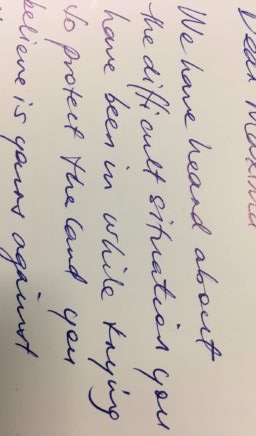 Dear Maxima
We have heard about
the difficult situation you
have been in while trying
to protect the land you
believe is yours against